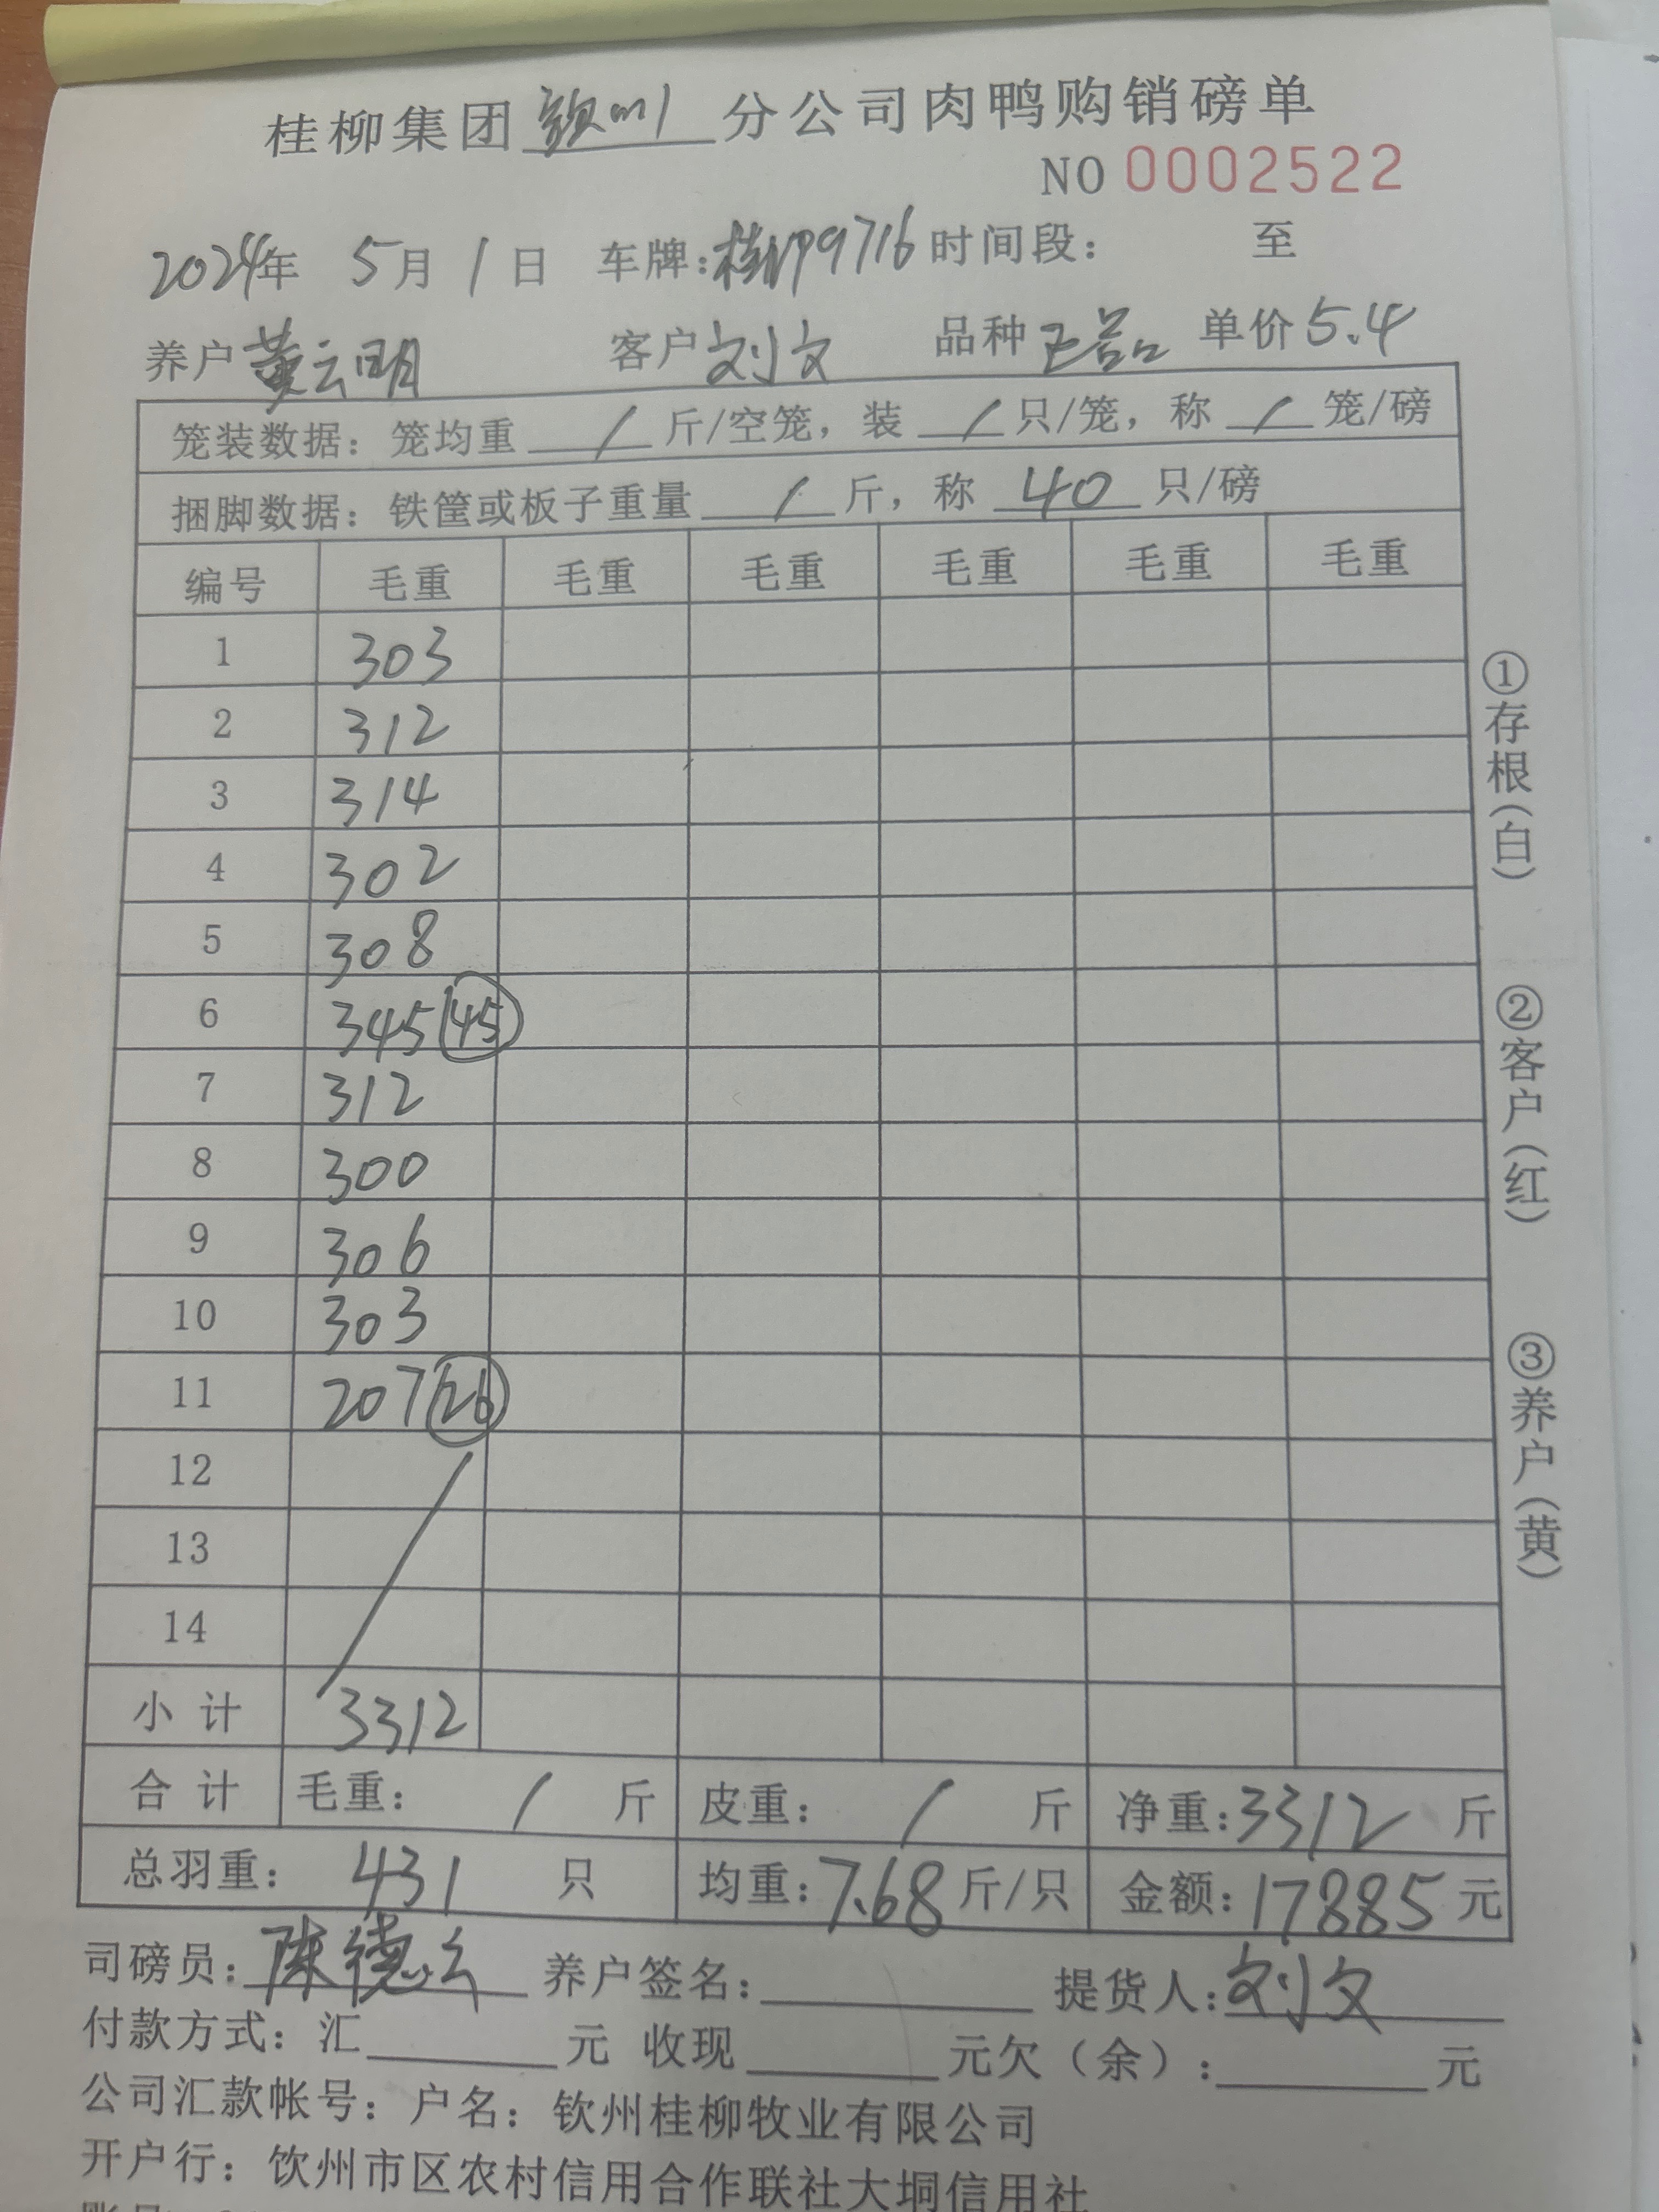 桂柳集团钦州分公司肉鸭购销磅单
NO 0002522
2024年 5月 1日 车牌:桂NP9716 时间段: 至
养户 黄云明 客户 刘文 品种 单价 5.4
笼装数据: 笼均重 / 斤/空笼, 装 / 只/笼, 称 / 笼/磅
捆脚数据: 铁筐或板子重量 / 斤, 称 40 只/磅
编号 毛重 毛重 毛重 毛重 毛重 毛重
1 303
2 312
3 314
4 302
5 308
6 345 45
7 312
8 300
9 306
10 303
11 207 26
12
13
14
小计 3312
合计 毛重: / 斤 皮重: / 斤 净重: 3312 斤
总羽重: 431 只 均重: 7.68 斤/只 金额: 17885 元
司磅员: 陈德云 养户签名: 提货人: 刘文
付款方式: 汇 元 收现 元欠(余): 元
公司汇款帐号: 户名: 钦州桂柳牧业有限公司
开户行: 饮州市区农村信用合作联社大垌信用社
①存根(白)
②客户(红)
③养户(黄)